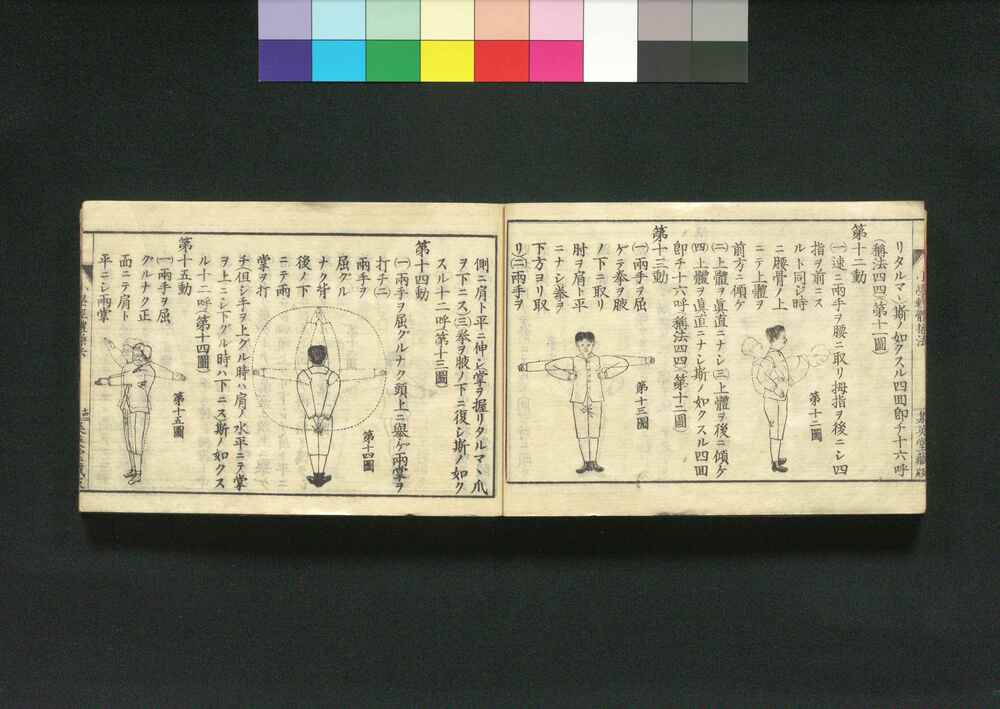 リタルマヽ斯ノ如クスル四囬卽チ十六呼
稱法四四(第十一圖)
第十二動
(一)速ニ兩手ヲ腰ニ取リ拇指ヲ後ニシ四
指ヲ前ニス
ルト同ジ時
ニ腰骨ノ上
ニテ上體ヲ
前方ニ傾ケ
(二)上體ヲ眞直ニナシ(三)上體ヲ後ニ傾ケ
(四)上體ヲ眞直ニナシ斯ノ如クスル四囬
卽チ十六呼稱法四四(第十二圖)
第十二圖
第十三動
(一)兩手ヲ屈
ゲテ拳ヲ腋
ノ下ニ取リ
肘ヲ肩ト平
ニナシ拳ヲ
下方ヨリ取
リ(二)兩手ヲ
第十三圖
側ニ肩ト平ニ伸シ掌ヲ握リタルマヽ爪
ヲ下ニス(三)拳ヲ腋ノ下ニ復シ斯ノ如ク
スル十二呼(第十三圖)
第十四動
(一)兩手ヲ屈グルナク頭上ニ擧ゲ兩掌ヲ
打チ(二)
兩手ヲ
屈グル
ナク背
後ノ下
ニテ兩
掌ヲ打
第十四圖
チ但シ手ヲ上グル時ハ肩ノ水平ニテ掌
ヲ上ニシ下グル時ハ下ニス斯ノ如クス
ル十二呼(第十四圖)
第十五動
(一)兩手ヲ屈
グルナク正
面ニテ肩ト
平ニシ兩掌
第十五圖